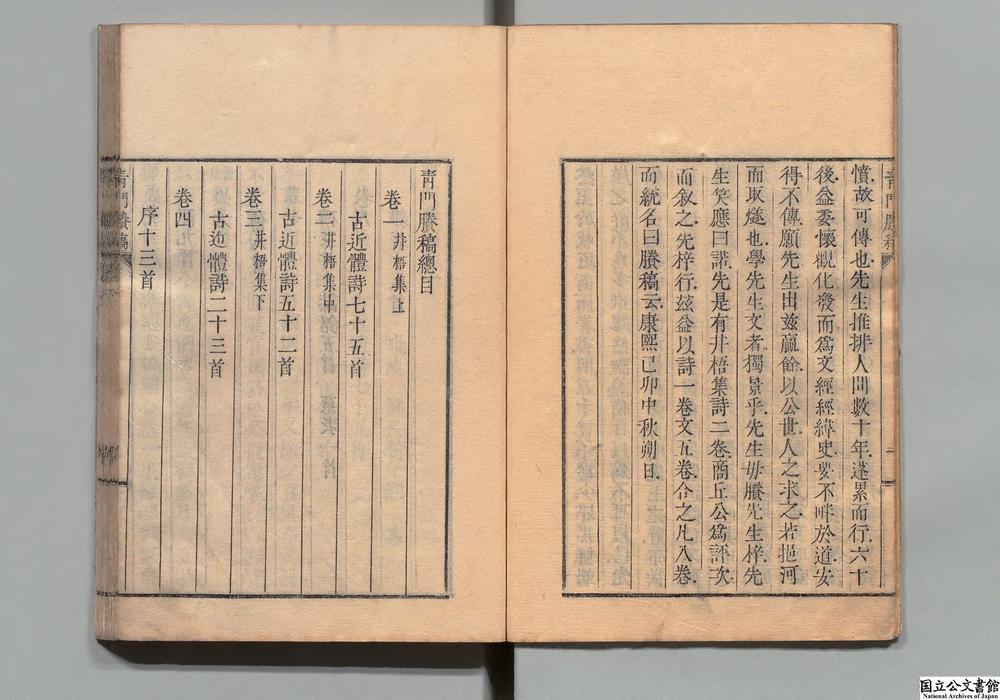 憤故可傳也先生推排人間數十年蓬累而行六十
後益委懷觀化發而為文經經緯史要不畔於道安
得不傳願先生出茲贏餘以公世人之求之若挹河
而取燧也學先生文者獨景乎先生毋賸先生梓先
生笑應曰諾先是有井梧集詩二卷商丘公為評次
而敘之先梓行茲益以詩一卷文五卷合之凡八卷
而統名曰賸稿云康熙己卯中秋朔日
青門賸稿
青門賸稿總目
卷一 井梧集上
古近體詩七十五首
卷二 井梧集中
古近體詩五十二首
卷三 井梧集下
古近體詩二十三首
卷四
序十三首
青門賸稿
国立公文書館
National Archives of Japan